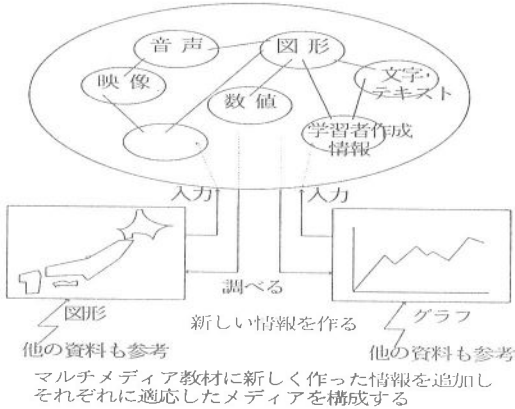 音声
図形
映像
文字・
テキスト
数値
学習者作成
情報
入力
入力
調べる
図形
新しい情報を作る
グラフ
他の資料も参考
他の資料も参考
マルチメディア教材に新しく作った情報を追加し
それぞれに適応したメディアを構成する